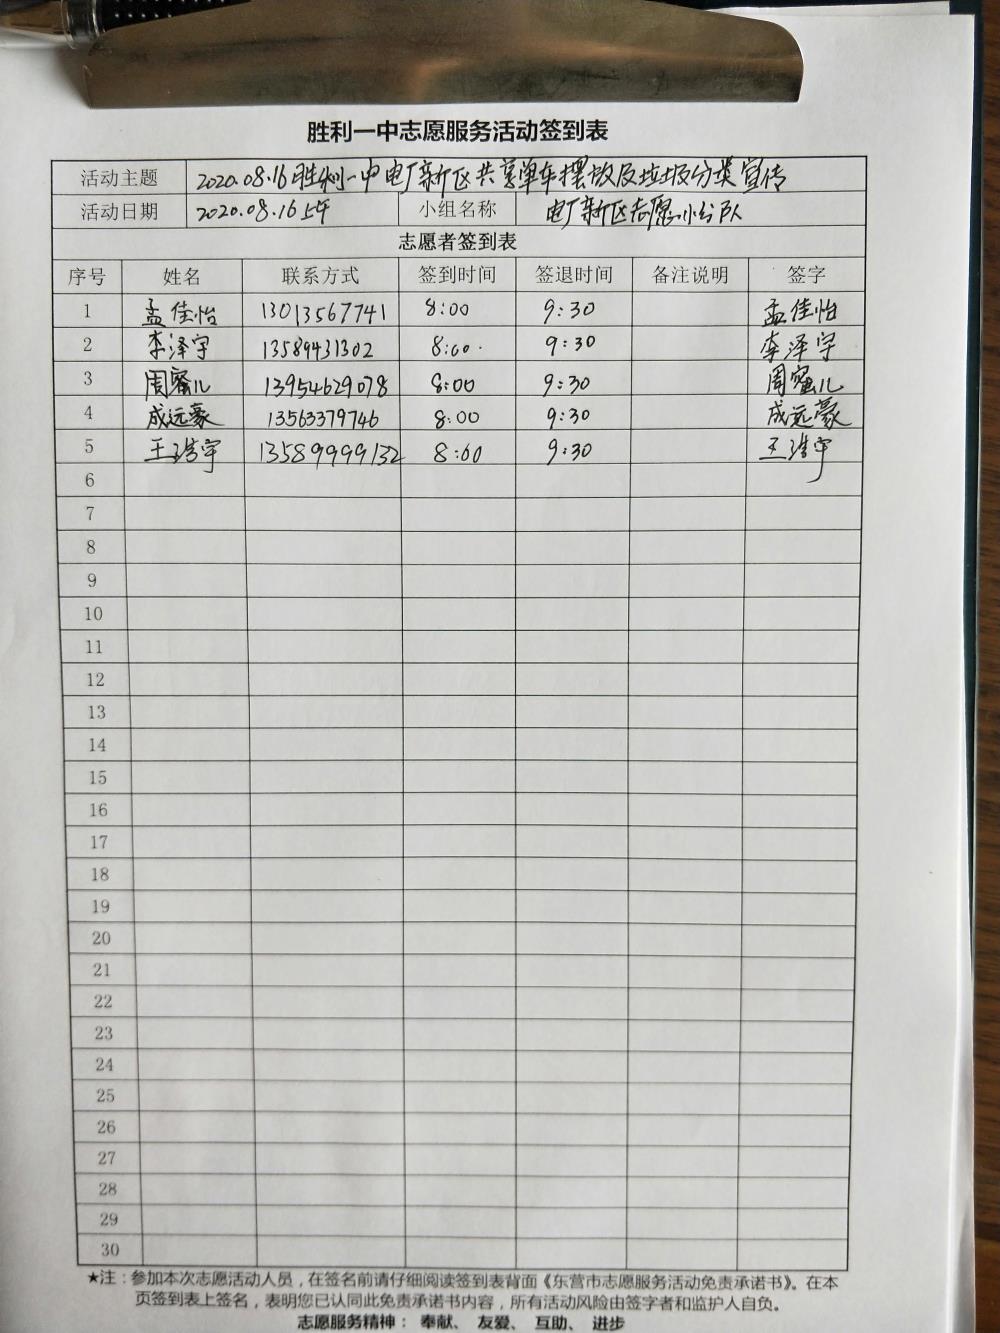 胜利一中志愿服务活动签到表
活动主题 2020.08.16胜利一中电厂新区共享单车摆放及垃圾分类宣传
活动日期 2020.08.16上午 小组名称 电厂新区志愿小分队
志愿者签到表
序号 姓名 联系方式 签到时间 签退时间 备注说明 签字
1 孟佳怡 13013567741 8:00 9:30 孟佳怡
2 李泽宇 13589431302 8:00. 9:30 李泽宇
3 周蜜儿 13954629078 8:00 9:30 周蜜儿
4 成远豪 13563379746 8:00 9:30 成远豪
5 王浩宇 13589999132 8:00 9:30 王浩宇
6
7
8
9
10
11
12
13
14
15
16
17
18
19
20
21
22
23
24
25
26
27
28
29
30
★注：参加本次志愿活动人员，在签名前请仔细阅读签到表背面《东营市志愿服务活动免责承诺书》。在本
页签到表上签名，表明您已认同此免责承诺书内容，所有活动风险由签字者和监护人自负。
志愿服务精神： 奉献、 友爱、 互助、 进步